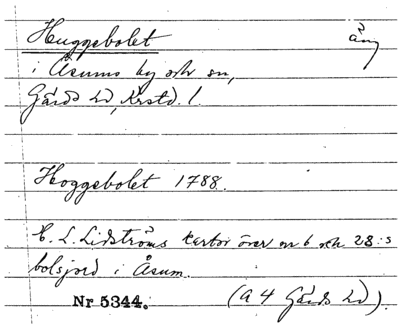 Huggebolet äng
i Åsums by och sn,
Gärds hd, Krstd. l.
Hoggebolet 1788.
C. L. Lidströms kartor över nr 6 och 28:s
bolsjord i Åsum.
Nr 5344. (a 4 Gärds hd).